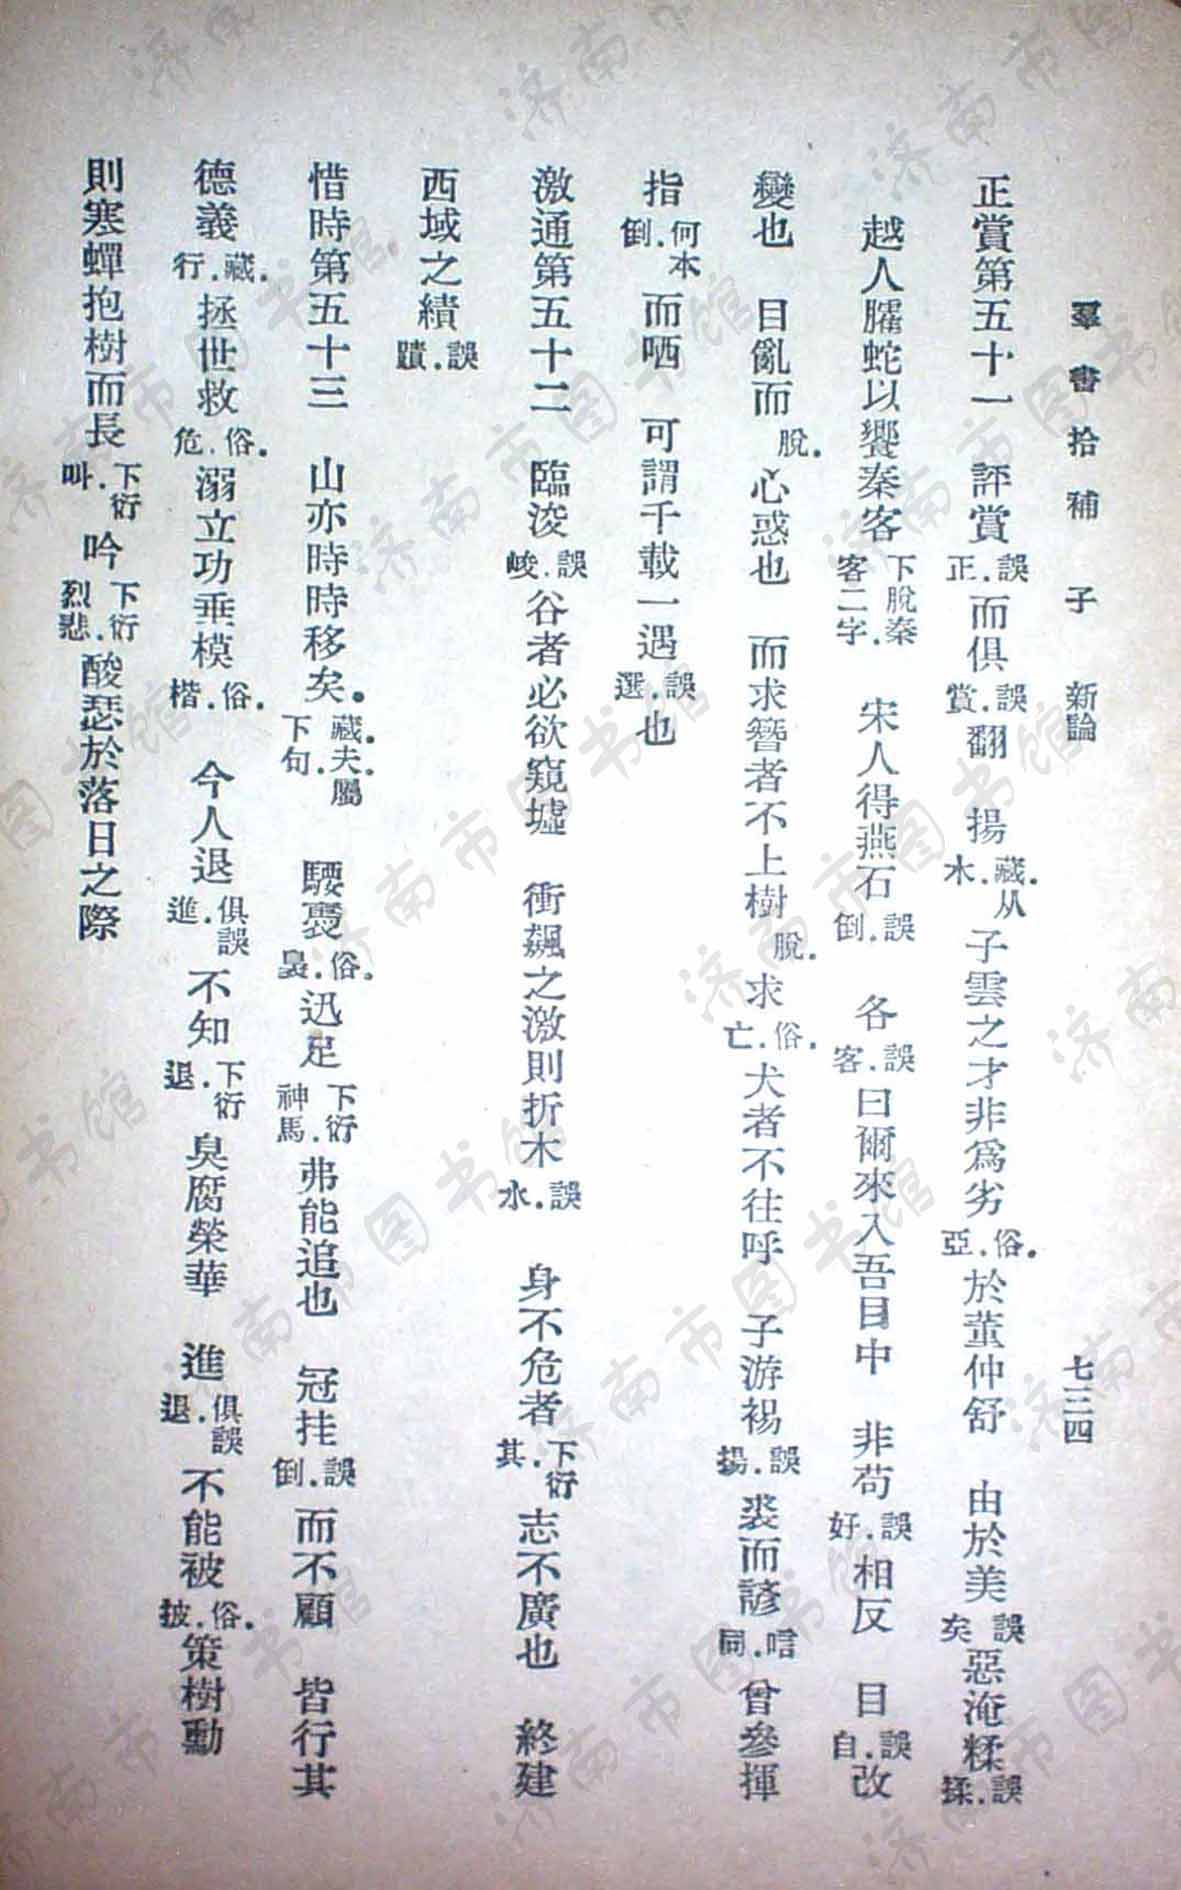 羣書拾補 子 新論 七三四
正賞第五十一 評賞誤.正 而俱誤.賞 翻 揚藏.从木. 子雲之才非爲劣俗.亞. 於董仲舒 由於美誤.矣 惡淹糅誤.揉
越人臛蛇以饗秦客下脫秦客二字. 宋人得燕石誤.倒 各誤.客 曰爾來入吾目中 非苟誤.好 相反 目誤.自 改
變也 目亂而脫. 心惑也 而求簪者不上樹脫. 求俗.亡. 犬者不往呼 子游裼誤.揚 裘而諺唁.同 曾參揮
指何本倒. 而哂 可謂千載一遇誤.選 也
激通第五十二 臨浚誤.峻 谷者必欲窺墟 衝飆之激則折木誤.水 身不危者下衍其. 志不廣也 終建
西域之績誤.蹟
惜時第五十三 山亦時時移矣.藏.夫.屬下句. 騕褭俗.裊. 迅足下衍神馬. 弗能追也 冠挂誤.倒 而不顧 皆行其
德義藏.行. 拯世救俗.危. 溺立功垂模俗.楷. 今人退俱誤進. 不知下衍退. 臭腐榮華 進俱誤退. 不能被俗.披. 策樹勳
則寒蟬抱樹而長下衍叫. 吟下衍烈悲. 酸瑟於落日之際
济南市图书馆